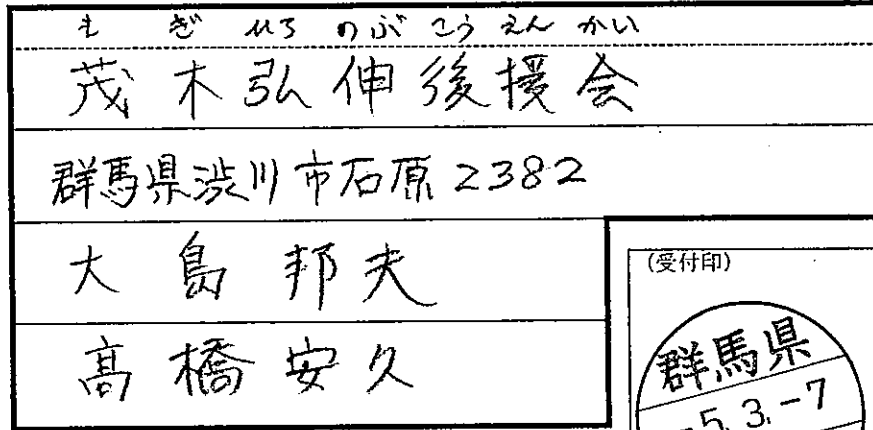 もぎひろのぶこうえんかい
茂木弘伸後援会
群馬県渋川市石原2382
大島邦夫
髙橋安久
(受付印)
群馬県
5.3.-7